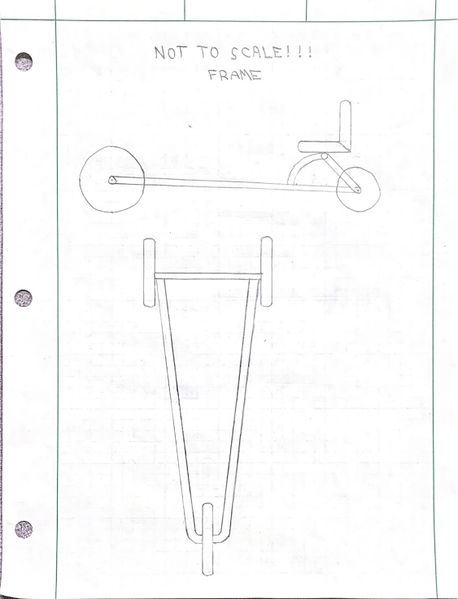 NOT TO SCALE!!!
FRAME